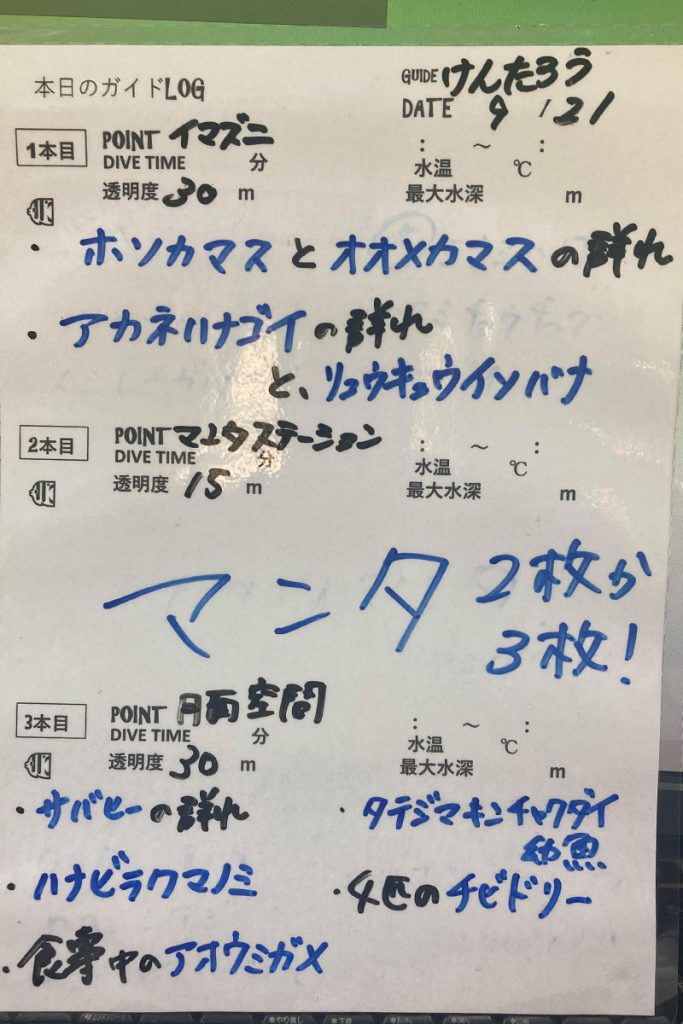 本日のガイドLOG
GUIDE けんたろう
DATE 9 / 21
1本目 POINT イマズニ
DIVE TIME 分 : ～ :
水温 ℃
透明度 30 m 最大水深 m
・ホソカマスとオオメカマスの群れ
・アカネハナゴイの群れ
と、リュウキュウイソバナ
2本目 POINT マンタステーション
DIVE TIME 分 : ～ :
水温 ℃
透明度 15 m 最大水深 m
マンタ 2枚か
3枚!
3本目 POINT 月面空間
DIVE TIME 分 : ～ :
水温 ℃
透明度 30 m 最大水深 m
・サバヒーの群れ
・タテジマキンチャクダイ
幼魚
・ハナビラクマノミ
・4匹のチビドリー
・食事中のアオウミガメ